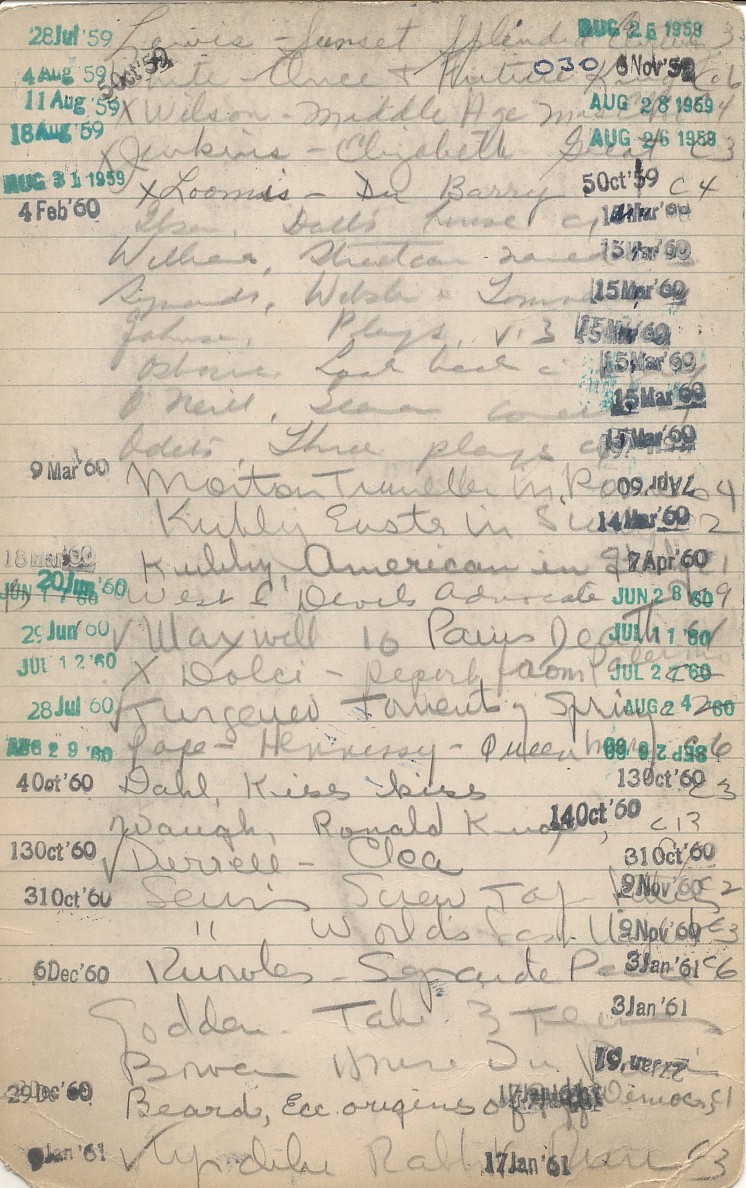 28 Jul '59 Lewis - Sunset Splendid AUG 25 1959 3
4 Aug '59 5 Oct '59 - Once + Future 030 6 Nov '59 c6
11 Aug '59 X Wilson - Middle Age AUG 28 1959 4
18 Aug '59 X Jenkins - Elizabeth Great AUG 26 1959 C3
AUG 31 1959 X Loomis - Du Barry 5 Oct '59 C4
4 Feb '60 Ibsen, Doll's house Mar '60
Williams, Streetcar named 15 Mar '60
Symonds, Webster + 15 Mar '60
Johnson, Plays, v. 3 15 Mar '60
Osborne, Look back 15 Mar '60
O'Neill, 15 Mar '60
Odets, Three plays Mar '60
9 Mar '60 Morton Traveller in Rome 7 Apr '60 4
Kubly Easter in 14 Mar '60 2
18 Mar '60 Kubly, American in 7 Apr '60 1
JUN 17 '60 20 Jun '60 West L Devils Advocate JUN 28 '60 9
29 Jun '60 √ Maxwell 10 Pains Death JUL 11 '60
JUL 12 '60 X Dolci - Report from Palermo JUL 2 '60
28 Jul '60 √ Turgenev Torrents of Spring AUG 24 '60 2
AUG 29 '60 Pope-Hennessy - Queen Mary SEP 26 '60 c6
4 Oct '60 Dahl, Kiss kiss 13 Oct '60 C3
Waugh, Ronald Knox, 14 Oct '60 C13
13 Oct '60 √ Durrell - Clea 31 Oct '60
31 Oct '60 Lewis Screw Tap 9 Nov '60 C2
" World's Last 9 Nov '60 C3
6 Dec '60 Knowles - Separate Peace 3 Jan '61 C6
Godden - Take 3 3 Jan '61
Bowen '61
29 Dec '60 Beard, Ecc. origins of Jeff Democ C1
9 Jan '61 √ Updike Rabbit, Run 17 Jan '61 C3